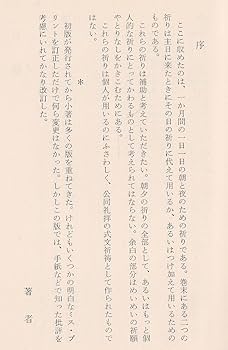 序
ここに収めたのは、一か月間の一日一日の朝と夜のための祈りである。巻末にある二つの
祈りは主日に来たときにその日の祈りに代えて用いるか、あるいはつけ加えて用いるための
ものである。
これらの祈りは補助と考えていただきたい。朝夕の祈りの全部として、あるいはもっと個
人的な祈りにとってかわるものとして考えられてはならない。余白の部分はめいめいの祈願
やとりなしをかきこむためにある。
これらの祈りは個人が用いるのにふさわしく、公同礼拝の式文祈祷として作られたもので
はない。
＊
初版が発行されてから小著は多くの版を重ねてきた。けれどもいくつかの明白なミス・プ
リントを訂正しただけで何ら変更はなかった。しかしこの版では、手紙などで知った批評を
考慮にいれてかなり改訂した。
著者